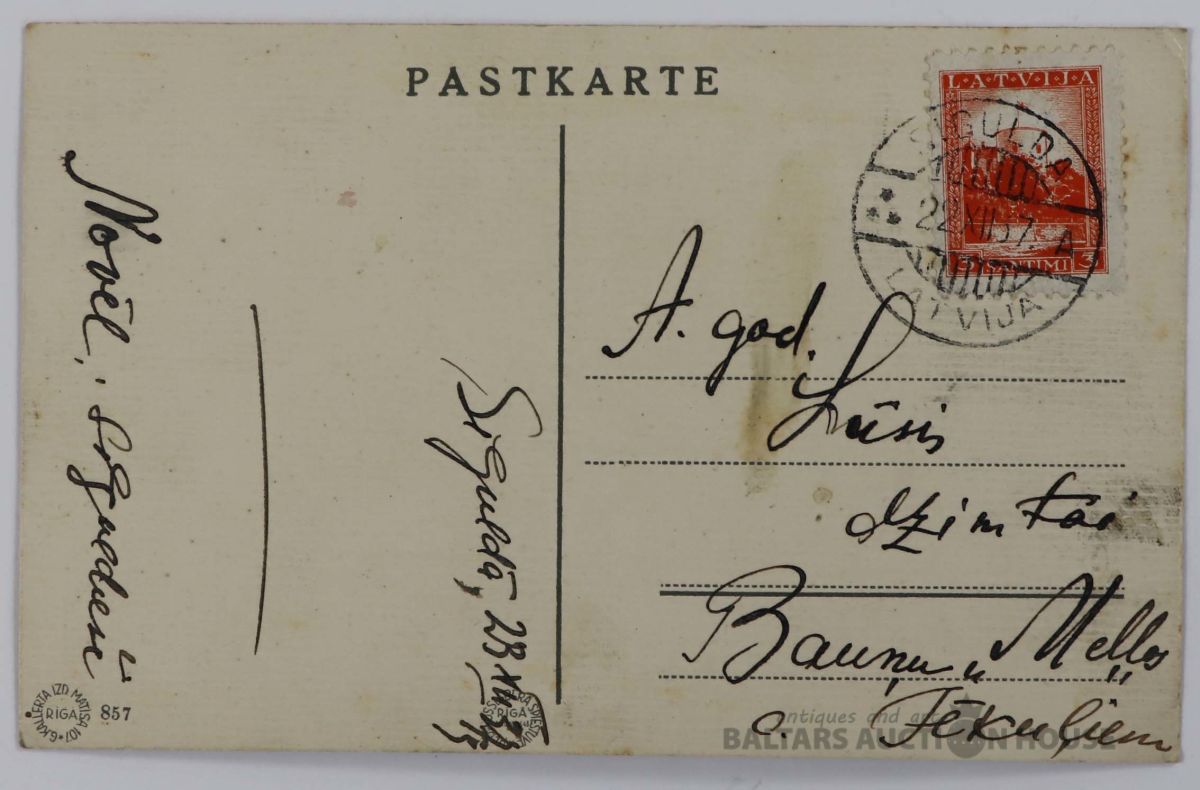 PASTKARTE
LATVIJA
SIGULDA
22 XII 37. A
LATVIJA
SANTIMI 3
Novēl
Siguldā, 23 XII 37
A. god.
Lūsis
dzimtai
Bauņu „Mellos"
c. Tēkuļiem
G.KALLERTA IZD. MATĪSA 107
RĪGA
857
RĪGA
antiques and art
BALTARS AUCTION HOUSE